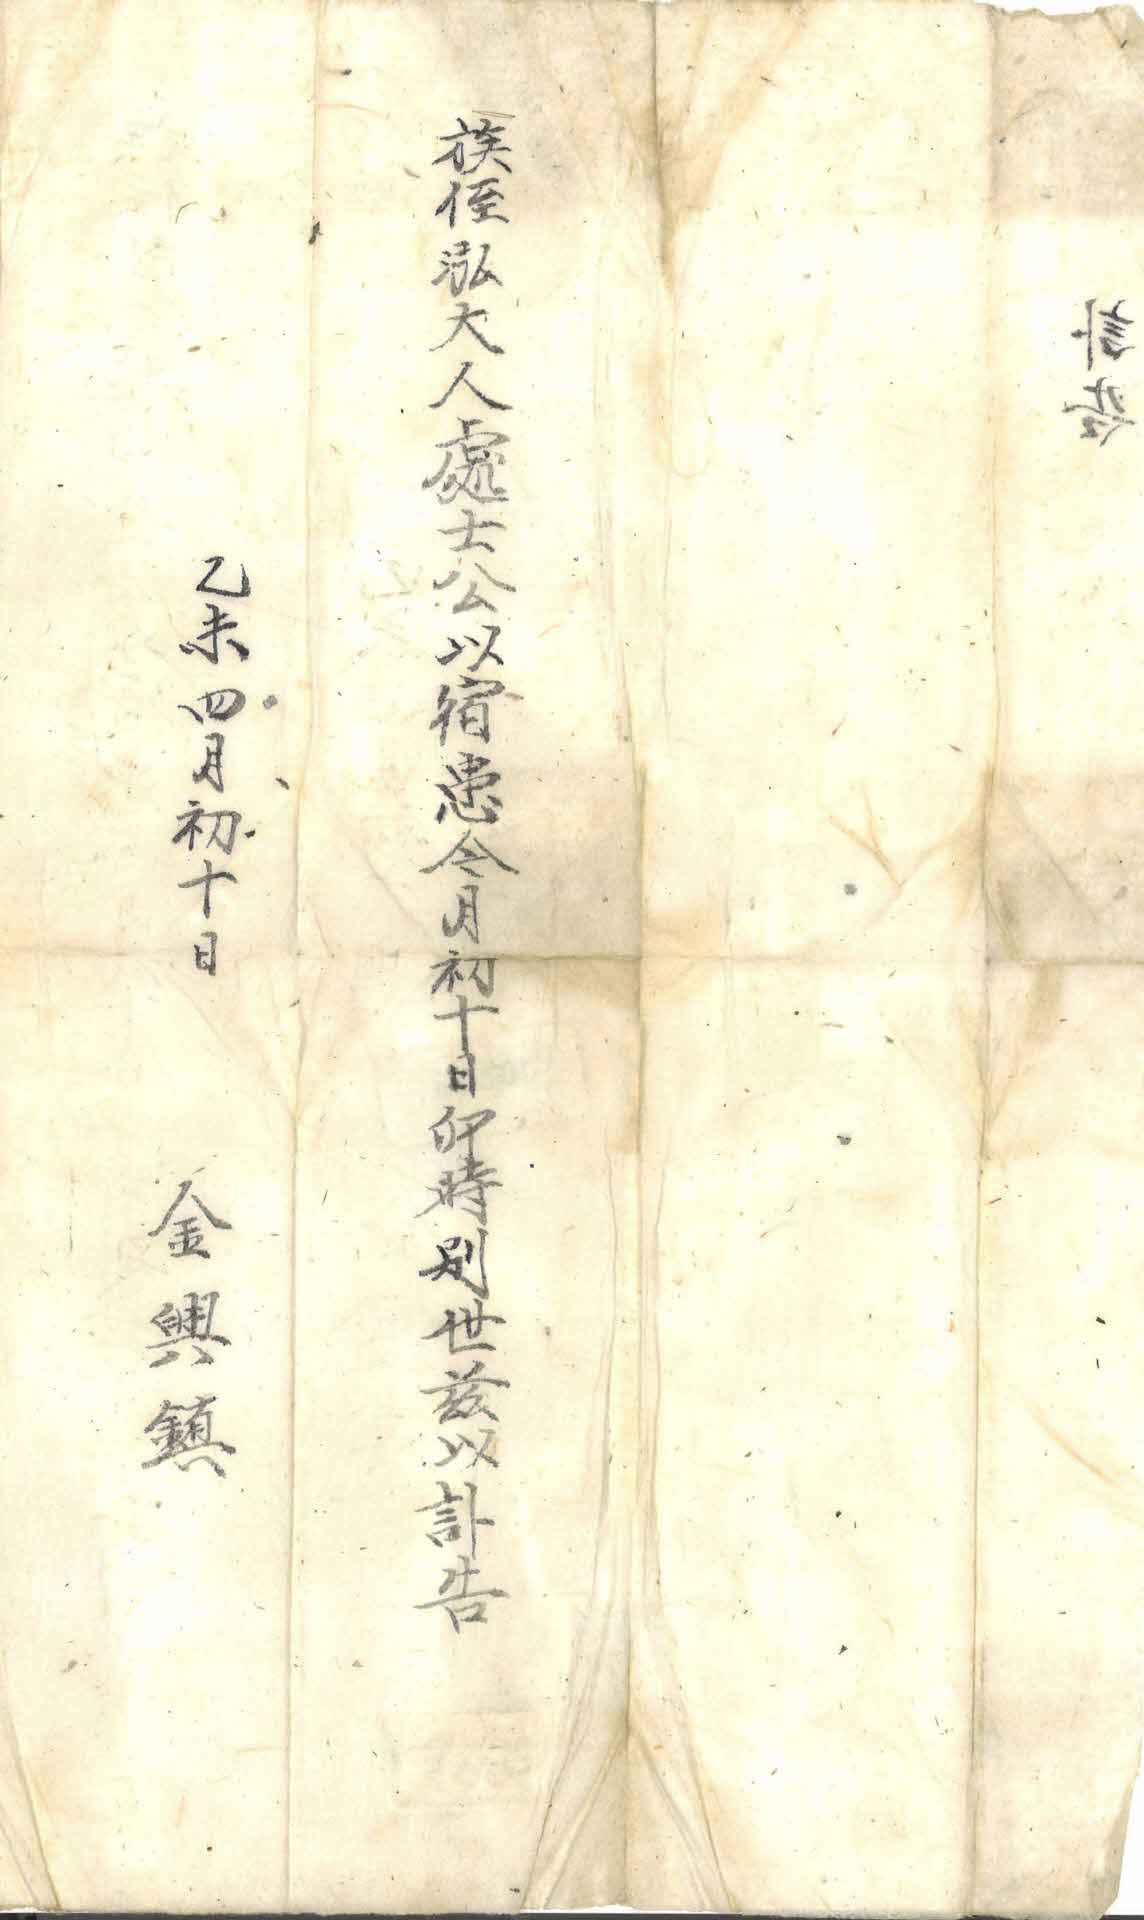 訃告
族侄泓大人處士公以宿患今月初十日卯時別世玆以訃告
乙未四月初十日
金興鎮